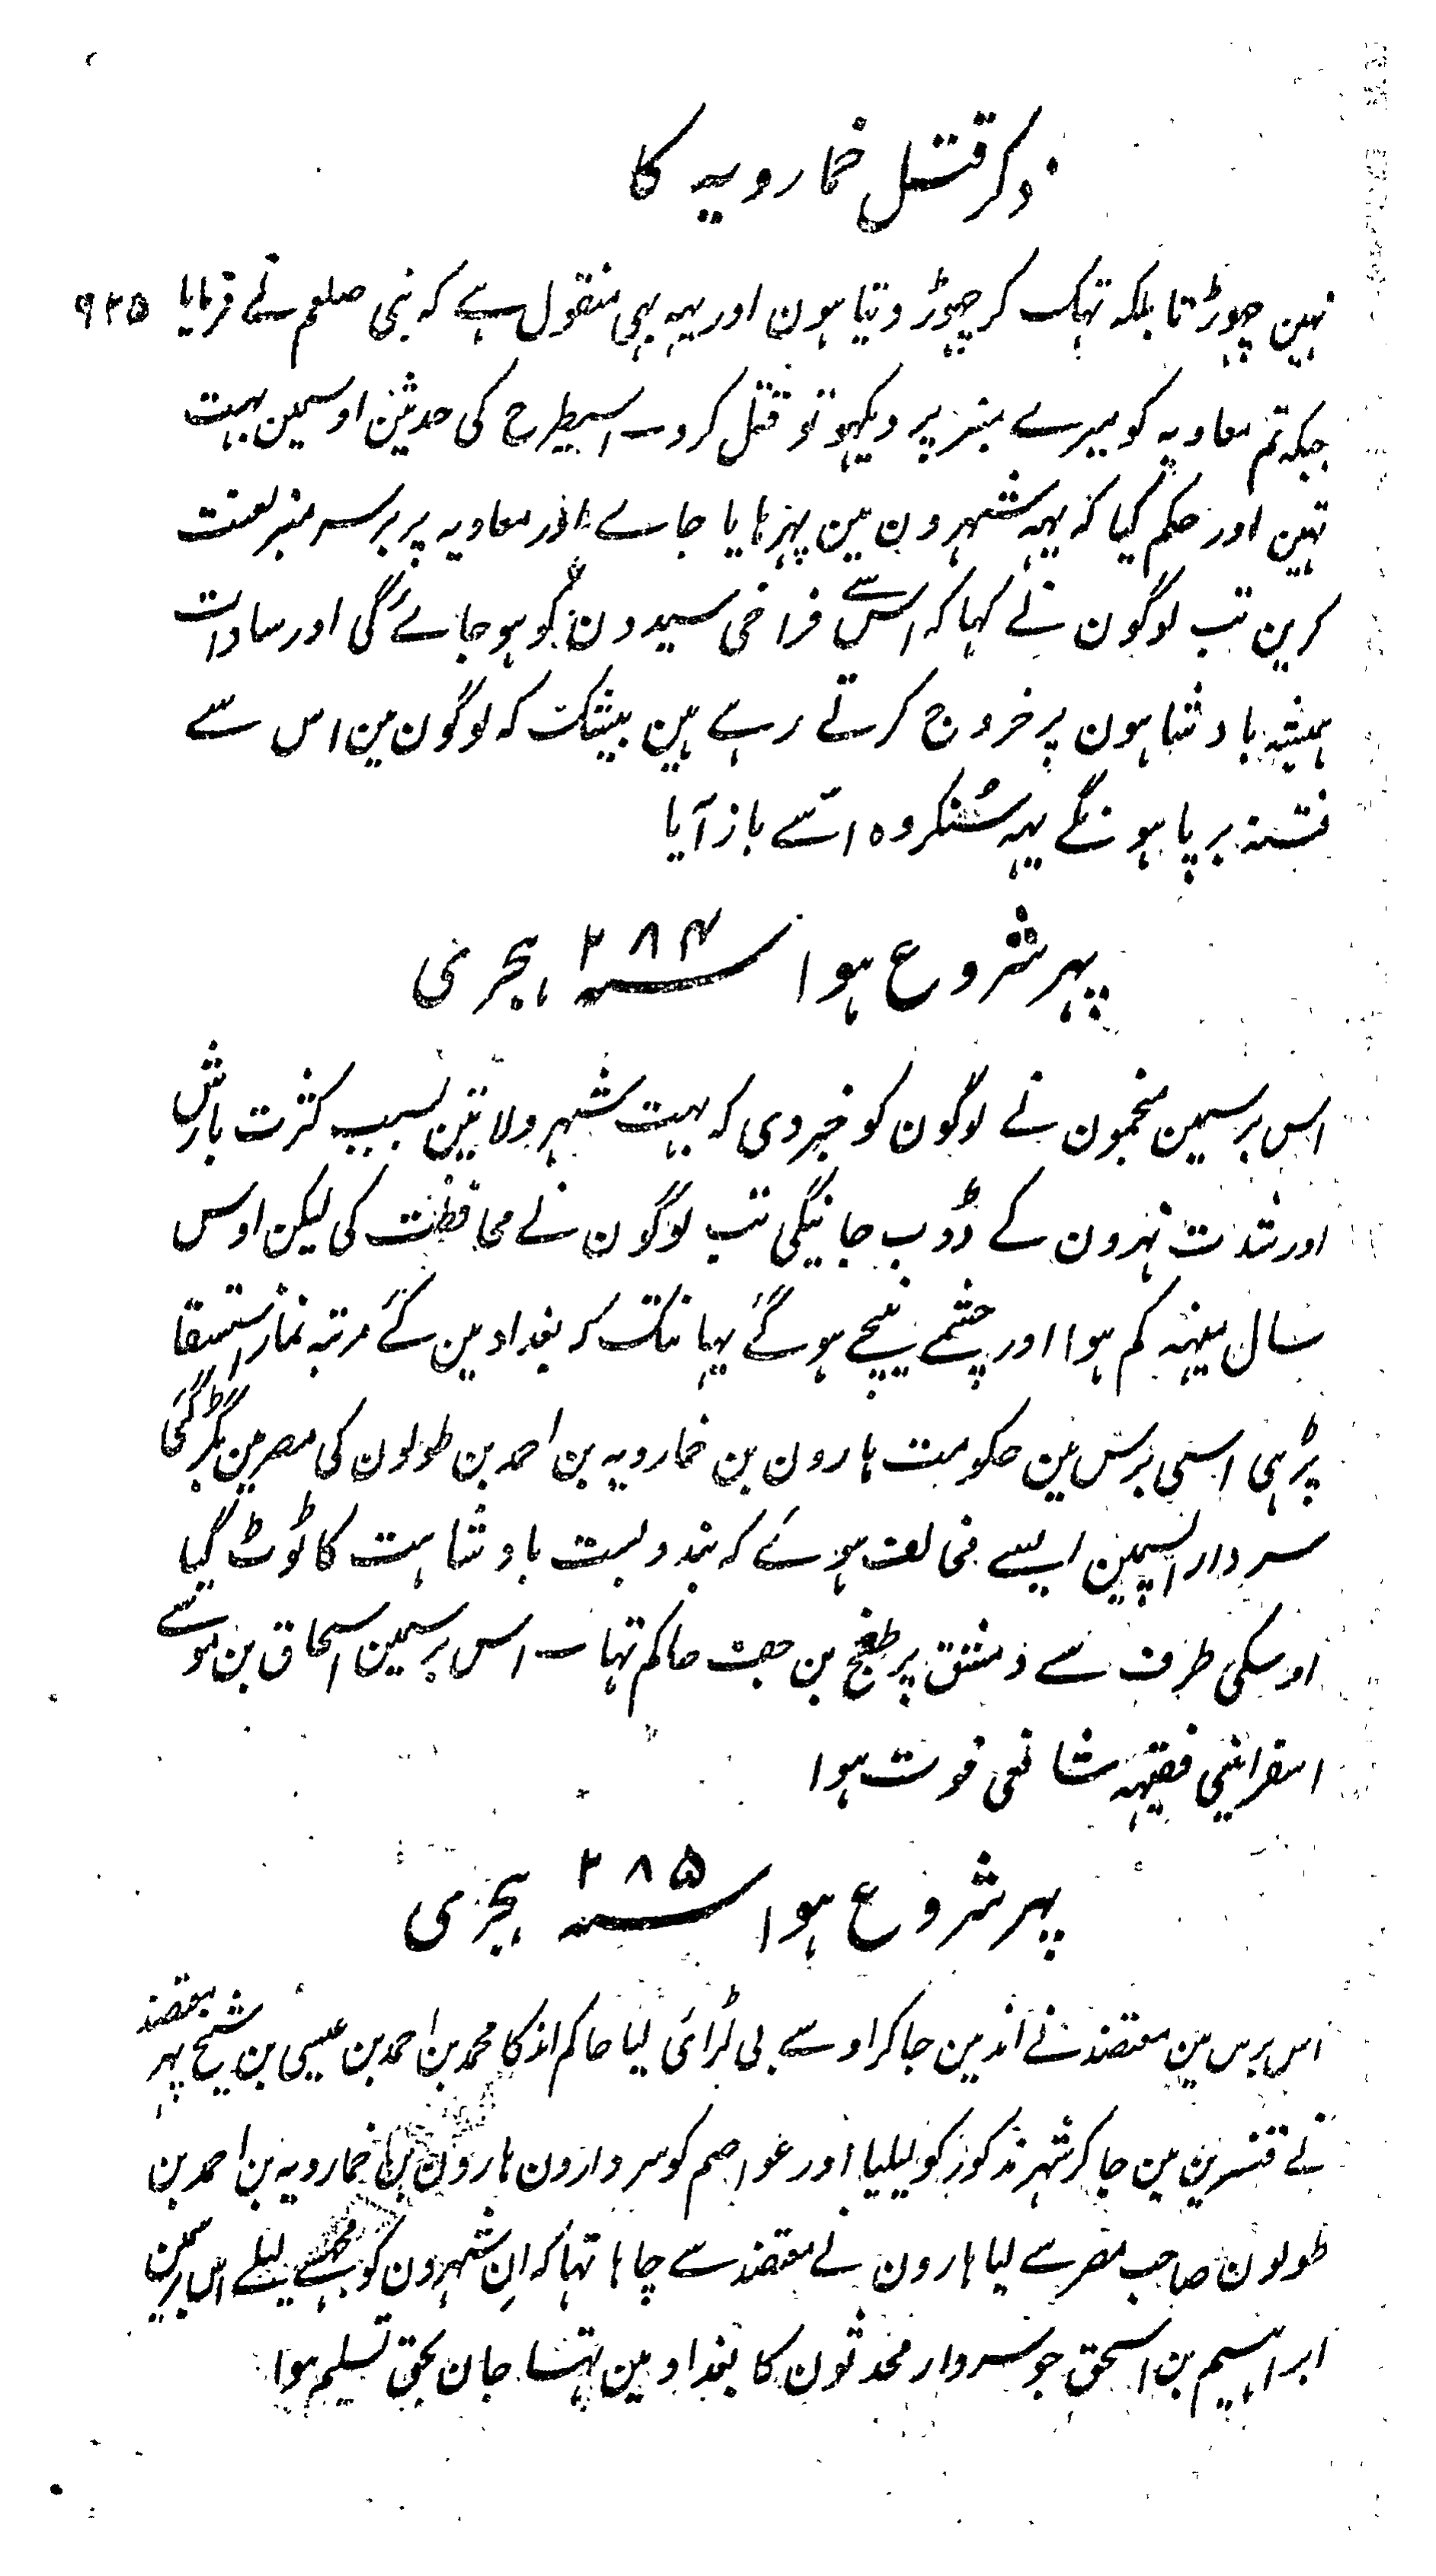 ذکر قتل خمارویہ کا
نہین چہوڑتا بلکہ تہک کر چہوڑ دیتا ہون اور یہہ بہی منقول ہے کہ نبی صلعم نے فرمایا ۹۲۵
جبکہ تم معاویہ کو میرے منبر پر دیکہو تو قتل کرو۔ اسیطرح کی حدیثین اوسمین بہت
تہین اور حکم کیا کہ یہہ شہرون مین پہرہایا جاے اور معاویہ پر برسر منبر لعنت
کرین تب لوگون نے کہا کہ اسسے فراخی سیدون کو ہو جائے گی اور سادات
ہمیشہ بادشاہون پر خروج کرتے رہے ہین بیشک کہ لوگون مین اس سے
فتنہ برپا ہونگے یہہ سُنکر وہ اسّے باز آیا
پہر شروع ہوا سنہ ۲۸۴ ہجری
اس برسمین منجمون نے لوگون کو خبر دی کہ بہت شہر ولایتین بسبب کثرت بارش
اور شدت نہرون کے ڈوب جانیگی تب لوگون نے محافظت کی لیکن اوس
سال مینہہ کم ہوا اور چشمے نیچے ہو گے یہانتک کہ بغداد مین کئے مرتبہ نماز استسقا
پڑہی اسی برس مین حکومت ہارون بن خمارویہ بن احمد بن طولون کی مصر مین بگڑ گئی
سردار اسپمین ایسے مخالف ہوئے کہ بندوبست بادشاہت کا ٹوٹ گیا
اوسکی طرف سے دمشق پر طغج بن جف حاکم تہا۔ اس برسمین اسحاق بن موسے
اسفراینی فقیہہ شافعی فوت ہوا
پہر شروع ہوا سنہ ۲۸۵ ہجری
اس برس مین معتضد نے آمد مین جاکر اوسے بی لڑائی لیا حاکم امد کا محمد بن احمد بن عیسی بن شیخ پہر معتضد
نے قنسرین مین جاکر شہر مذکور کو لیلیا اور عواصم کو سردارون ہارون بن خمارویہ بن احمد بن
طولون صاحب مصر سے لیا ہارون نے معتضد سے چاہا تہا کہ اِن شہرون کو مجہسے لیلے اس برسمین
ابراہیم بن اسحق جو سردار محدثون کا بغداد مین تہا جان بحق تسلیم ہوا